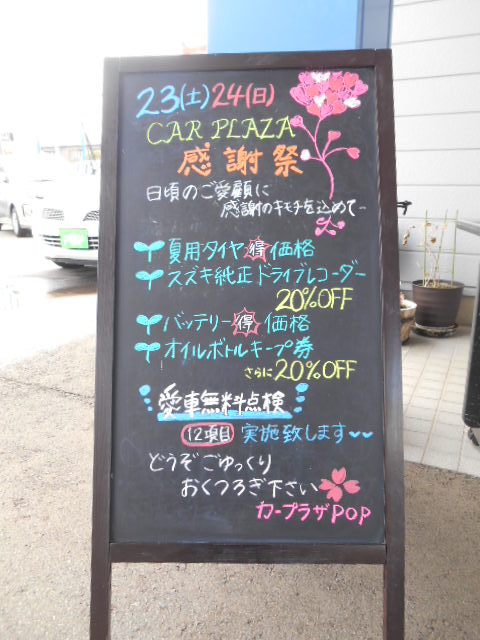 23(土)24(日)
CAR PLAZA
感謝祭
日頃のご愛顧に
感謝のキモチを込めて-
夏用タイヤ 得 価格
スズキ純正ドライブレコーダー
20%OFF
バッテリー 得 価格
オイルボトルキープ券
さらに20%OFF
愛車無料点検
12項目 実施致します
どうぞごゆっくり
おくつろぎ下さい
カープラザPOP